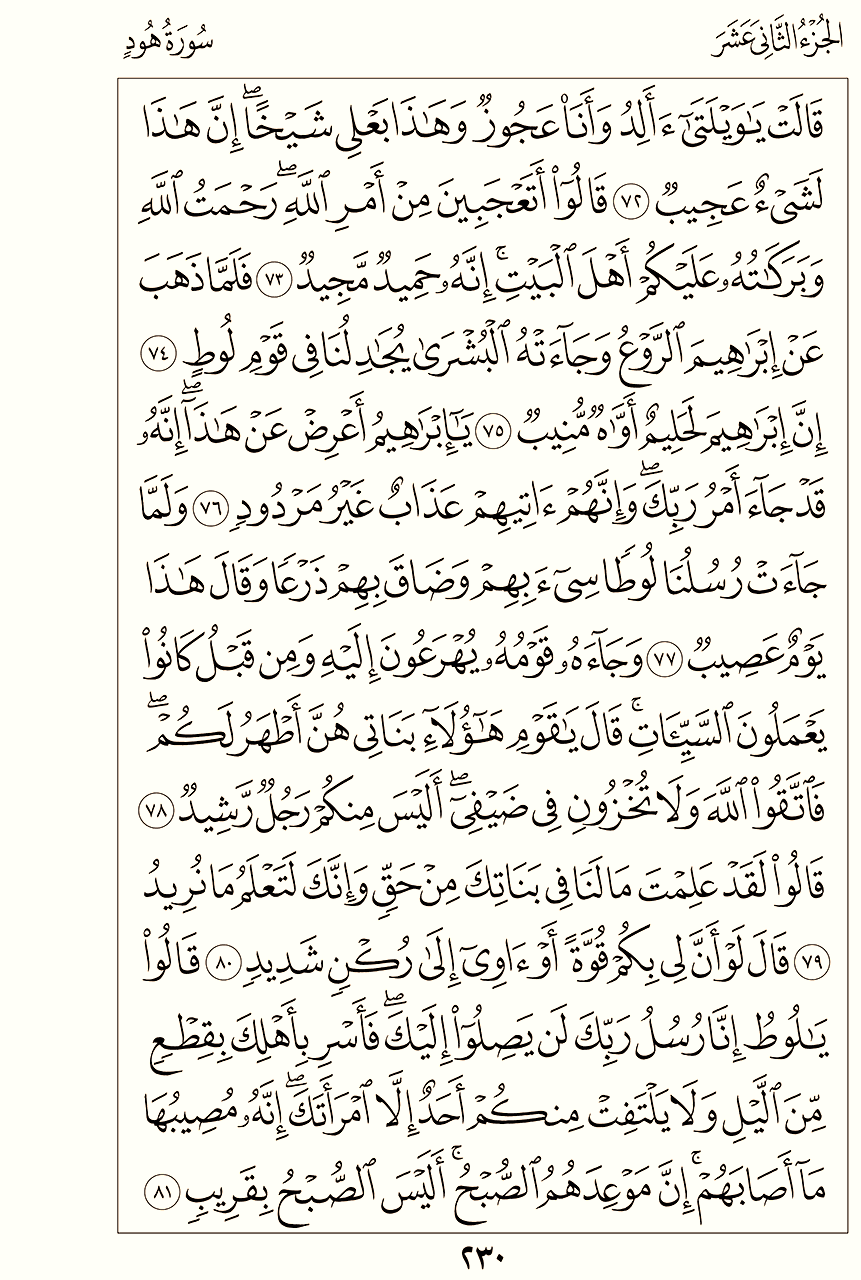 الجُزْءُ الثَّانِي عَشَرَ
سُورَةُ هُودٍ
قَالَتْ يَـٰوَيْلَتَىٰٓ ءَأَلِدُ وَأَنَا۠ عَجُوزٌ وَهَـٰذَا بَعْلِى شَيْخًا ۖ إِنَّ هَـٰذَا
لَشَىْءٌ عَجِيبٌ ﴿٧٢﴾ قَالُوٓا۟ أَتَعْجَبِينَ مِنْ أَمْرِ ٱللَّهِ ۖ رَحْمَتُ ٱللَّهِ
وَبَرَكَـٰتُهُۥ عَلَيْكُمْ أَهْلَ ٱلْبَيْتِ ۚ إِنَّهُۥ حَمِيدٌ مَّجِيدٌ ﴿٧٣﴾ فَلَمَّا ذَهَبَ
عَنْ إِبْرَٰهِيمَ ٱلرَّوْعُ وَجَآءَتْهُ ٱلْبُشْرَىٰ يُجَـٰدِلُنَا فِى قَوْمِ لُوطٍ ﴿٧٤﴾
إِنَّ إِبْرَٰهِيمَ لَحَلِيمٌ أَوَّٰهٌ مُّنِيبٌ ﴿٧٥﴾ يَـٰٓإِبْرَٰهِيمُ أَعْرِضْ عَنْ هَـٰذَآ ۖ إِنَّهُۥ
قَدْ جَآءَ أَمْرُ رَبِّكَ ۖ وَإِنَّهُمْ ءَاتِيهِمْ عَذَابٌ غَيْرُ مَرْدُودٍ ﴿٧٦﴾ وَلَمَّا
جَآءَتْ رُسُلُنَا لُوطًا سِىٓءَ بِهِمْ وَضَاقَ بِهِمْ ذَرْعًا وَقَالَ هَـٰذَا
يَوْمٌ عَصِيبٌ ﴿٧٧﴾ وَجَآءَهُۥ قَوْمُهُۥ يُهْرَعُونَ إِلَيْهِ وَمِن قَبْلُ كَانُوا۟
يَعْمَلُونَ ٱلسَّيِّـَٔاتِ ۚ قَالَ يَـٰقَوْمِ هَـٰٓؤُلَآءِ بَنَاتِى هُنَّ أَطْهَرُ لَكُمْ ۖ
فَٱتَّقُوا۟ ٱللَّهَ وَلَا تُخْزُونِ فِى ضَيْفِىٓ ۖ أَلَيْسَ مِنكُمْ رَجُلٌ رَّشِيدٌ ﴿٧٨﴾
قَالُوا۟ لَقَدْ عَلِمْتَ مَا لَنَا فِى بَنَاتِكَ مِنْ حَقٍّ وَإِنَّكَ لَتَعْلَمُ مَا نُرِيدُ
﴿٧٩﴾ قَالَ لَوْ أَنَّ لِى بِكُمْ قُوَّةً أَوْ ءَاوِىٓ إِلَىٰ رُكْنٍ شَدِيدٍ ﴿٨٠﴾ قَالُوا۟
يَـٰلُوطُ إِنَّا رُسُلُ رَبِّكَ لَن يَصِلُوٓا۟ إِلَيْكَ ۖ فَأَسْرِ بِأَهْلِكَ بِقِطْعٍ
مِّنَ ٱلَّيْلِ وَلَا يَلْتَفِتْ مِنكُمْ أَحَدٌ إِلَّا ٱمْرَأَتَكَ ۖ إِنَّهُۥ مُصِيبُهَا
مَآ أَصَابَهُمْ ۚ إِنَّ مَوْعِدَهُمُ ٱلصُّبْحُ ۚ أَلَيْسَ ٱلصُّبْحُ بِقَرِيبٍ ﴿٨١﴾
٢٣٠